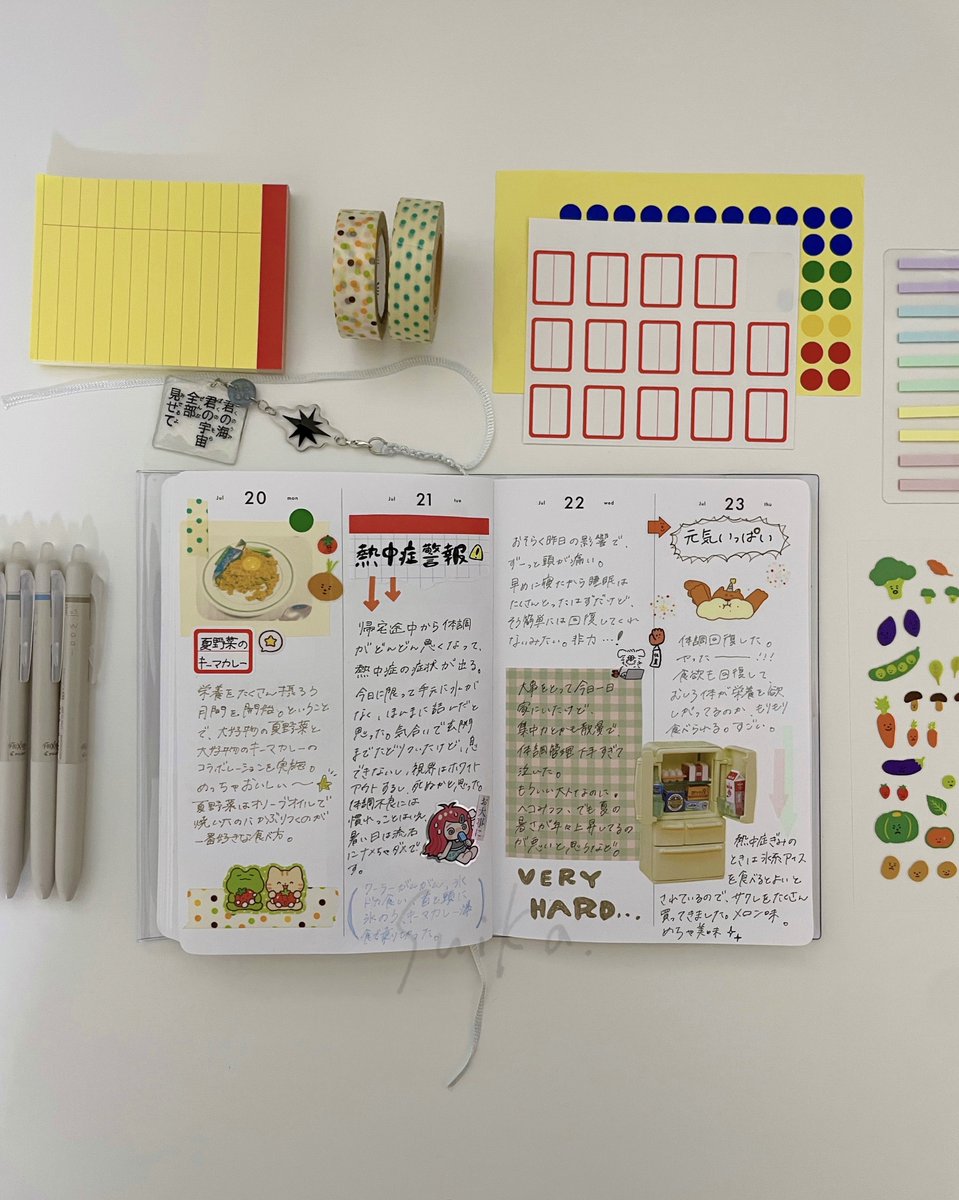 君の海
君の宇宙
全部
見せて
Jul 20 mon
夏野菜の
キーマカレー
栄養をたくさん摂ろう
月間を開始。ということ
で、大好物の夏野菜と
大好物のキーマカレーの
コラボレーションを実施。
めっちゃおいしい〜
夏野菜はオリーブオイルで
焼いたのにかぶりつくのが
一番好きな食べ方。
Jul 21 tue
熱中症警報
帰宅途中から体調
がどんどん悪くなって、
熱中症の症状が出る。
今日に限って手元に水が
なく、ほんまに詰んだと
思った。気合いで玄関
までたどりついたけど、息
できないし、視界はホワイト
アウトするし、死ぬかと思った。
体調不良には
慣れっことはいえ
暑い日は流石
にナメちゃダメで
す。
お大事に
クーラーがんがん、氷
ドカ食い、首と頭に
氷のう、キーマカレー
Jul 22 wed
おそらく昨日の影響で、
ずーっと頭が痛い。
早めに寝たから睡眠は
たくさんとったはずだけど、
そう簡単には回復してくれ
ないみたい。非力…!
大事をとって今日一日
家にいたけど、
集中力とかも散漫で
体調管理下手すぎて
泣いた。
もういい大人なのに。
ヘコみつつ、でも夏の
暑さが年々上昇してるの
が悪いと思うなど。
VERY
HARD...
Jul 23 thu
元気いっぱい
体調回復した。
やったーーー!!!
食欲も回復して
むしろ体が栄養を欲
しがってるのか、もりもり
食べられる。すごい。
熱中症ぎみの
ときは氷系アイス
を食べるとよいと
されているので、サクレをたくさん
買ってきました。メロン味。
めちゃ美味